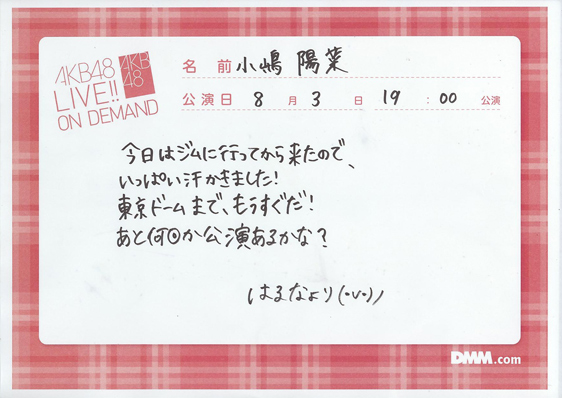 AKB48
LIVE!!
ON DEMAND
AKB
48
名 前 小嶋 陽菜
公演日 8 月 3 日 19 : 00 公演
今日はジムに行ってから来たので、
いっぱい汗かきました!
東京ドームまで、もうすぐだ!
あと何回か公演あるかな?
はるなより(•v•)ノ
DMM.com